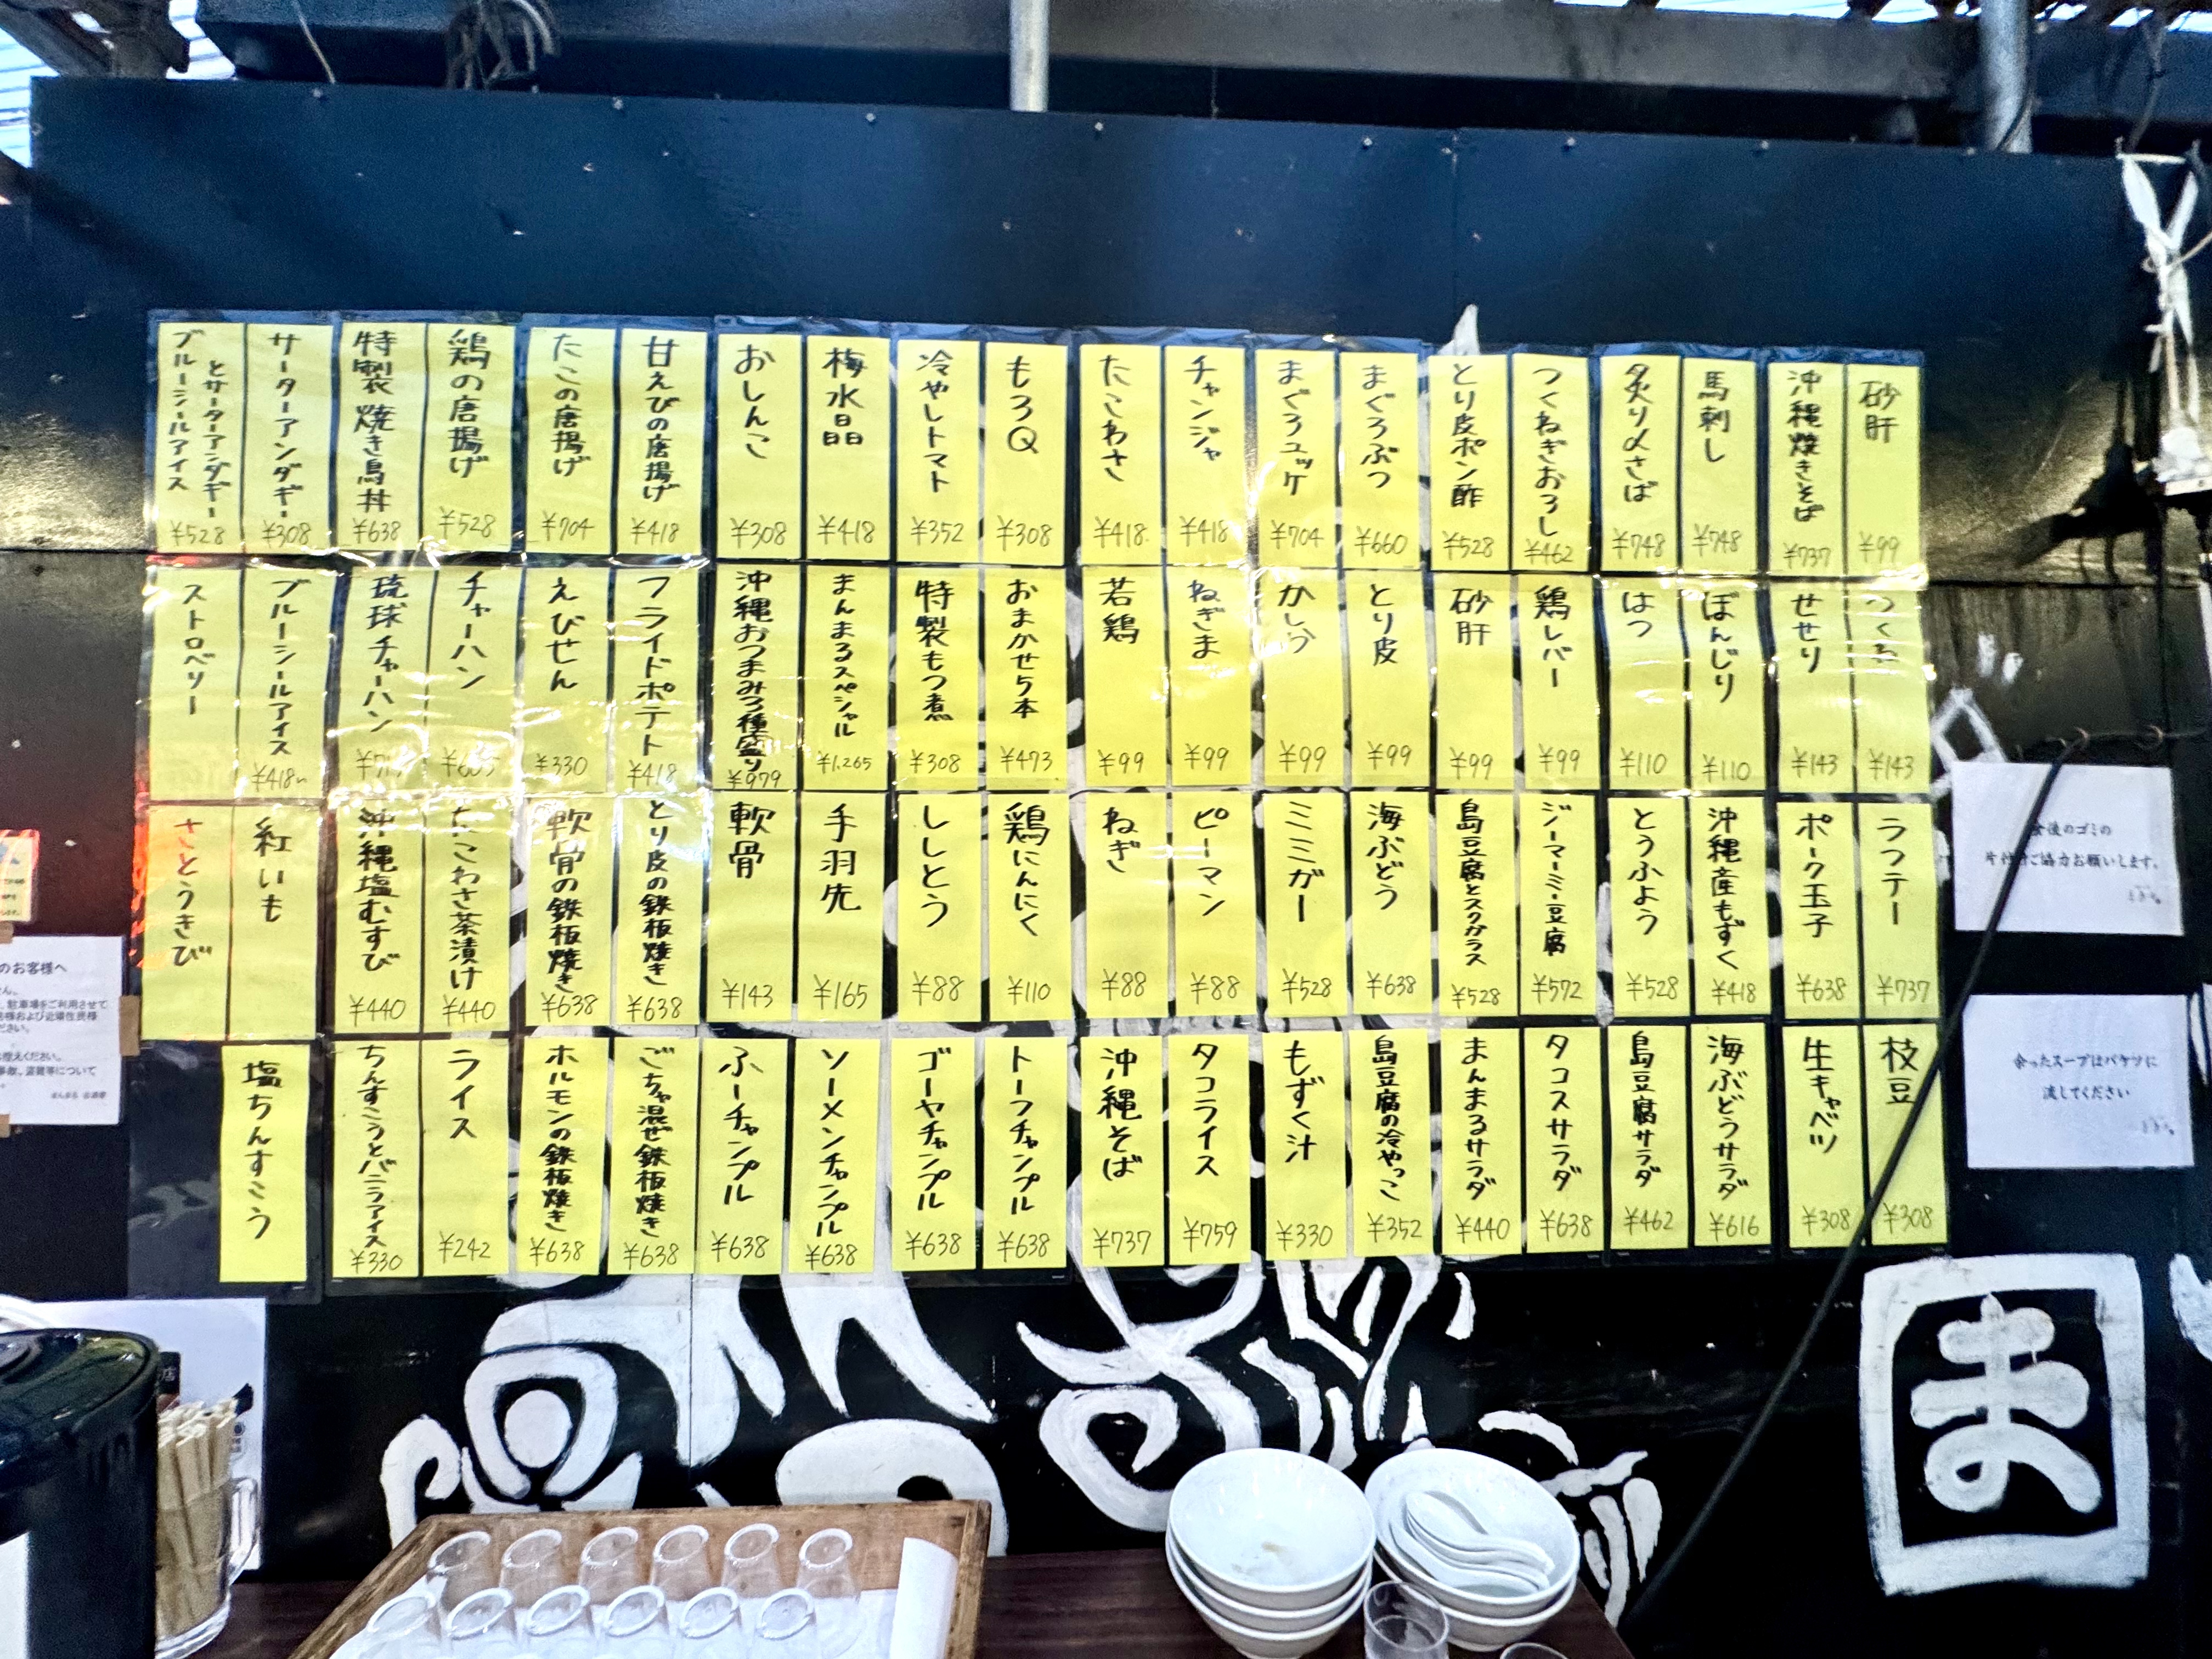 砂肝
¥99
沖縄焼きそば
¥737
馬刺し
¥748
炙り〆さば
¥748
つくねぎおろし
¥462
とり皮ポン酢
¥528
まぐろぶつ
¥660
まぐろユッケ
¥704
チャンジャ
¥418
たこわさ
¥418
もろQ
¥308
冷やしトマト
¥352
梅水晶
¥418
おしんこ
¥308
甘えびの唐揚げ
¥418
たこの唐揚げ
¥704
鶏の唐揚げ
¥528
特製焼き鳥丼
¥638
サーターアンダギー
¥308
ブルーシールアイス
とサーターアンダギー
¥528
つくね
¥143
せせり
¥143
ぼんじり
¥110
はつ
¥110
鶏レバー
¥99
砂肝
¥99
とり皮
¥99
かしら
¥99
ねぎま
¥99
若鶏
¥99
おまかせ5本
¥473
特製もつ煮
¥308
まんまるスペシャル
¥1.265
沖縄おつまみ3種盛り
¥979
フライドポテト
¥418
えびせん
¥330
チャーハン
琉球チャーハン
ブルーシールアイス
¥418~
ストロベリー
ラフテー
¥737
ポーク玉子
¥638
沖縄産もずく
¥418
とうふよう
¥528
ジーマーミー豆腐
¥572
島豆腐とスクガラス
¥528
海ぶどう
¥638
ミミガー
¥528
ピーマン
¥88
ねぎ
¥88
鶏にんにく
¥110
ししとう
¥88
手羽先
¥165
軟骨
¥143
とり皮の鉄板焼き
¥638
軟骨の鉄板焼き
¥638
たこわさ茶漬け
¥440
沖縄塩むすび
¥440
紅いも
さとうきび
枝豆
¥308
生キャベツ
¥308
海ぶどうサラダ
¥616
島豆腐サラダ
¥462
タコスサラダ
¥638
まんまるサラダ
¥440
島豆腐の冷やっこ
¥352
もずく汁
¥330
タコライス
¥759
沖縄そば
¥737
トーフチャンプル
¥638
ゴーヤチャンプル
¥638
ソーメンチャンプル
¥638
ふーチャンプル
¥638
ごちゃ混ぜ鉄板焼き
¥638
ホルモンの鉄板焼き
¥638
ライス
¥242
ちんすこうとバニラアイス
¥330
塩ちんすこう
食後のゴミの
片付けご協力お願いします。
余ったスープはバケツに
流してください
のお客様へ
駐車場をご利用させて
ま